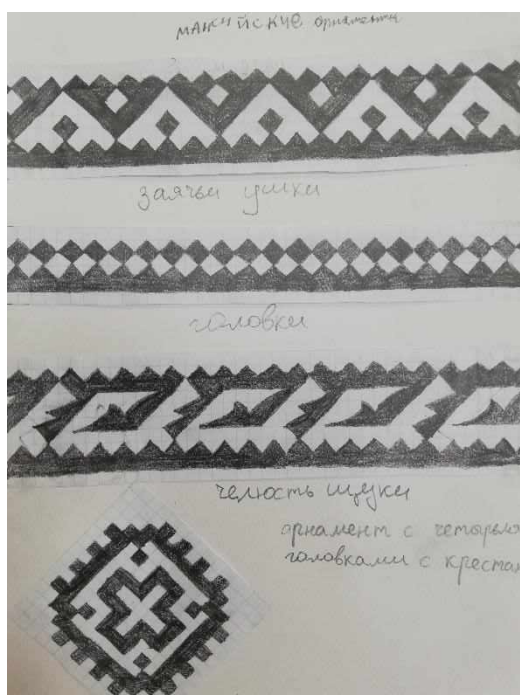 МАНСИЙСКИЕ орнаменты
заячьи ушки
головки
челюсть щуки
арнамент с четырьмя
головками с крестам